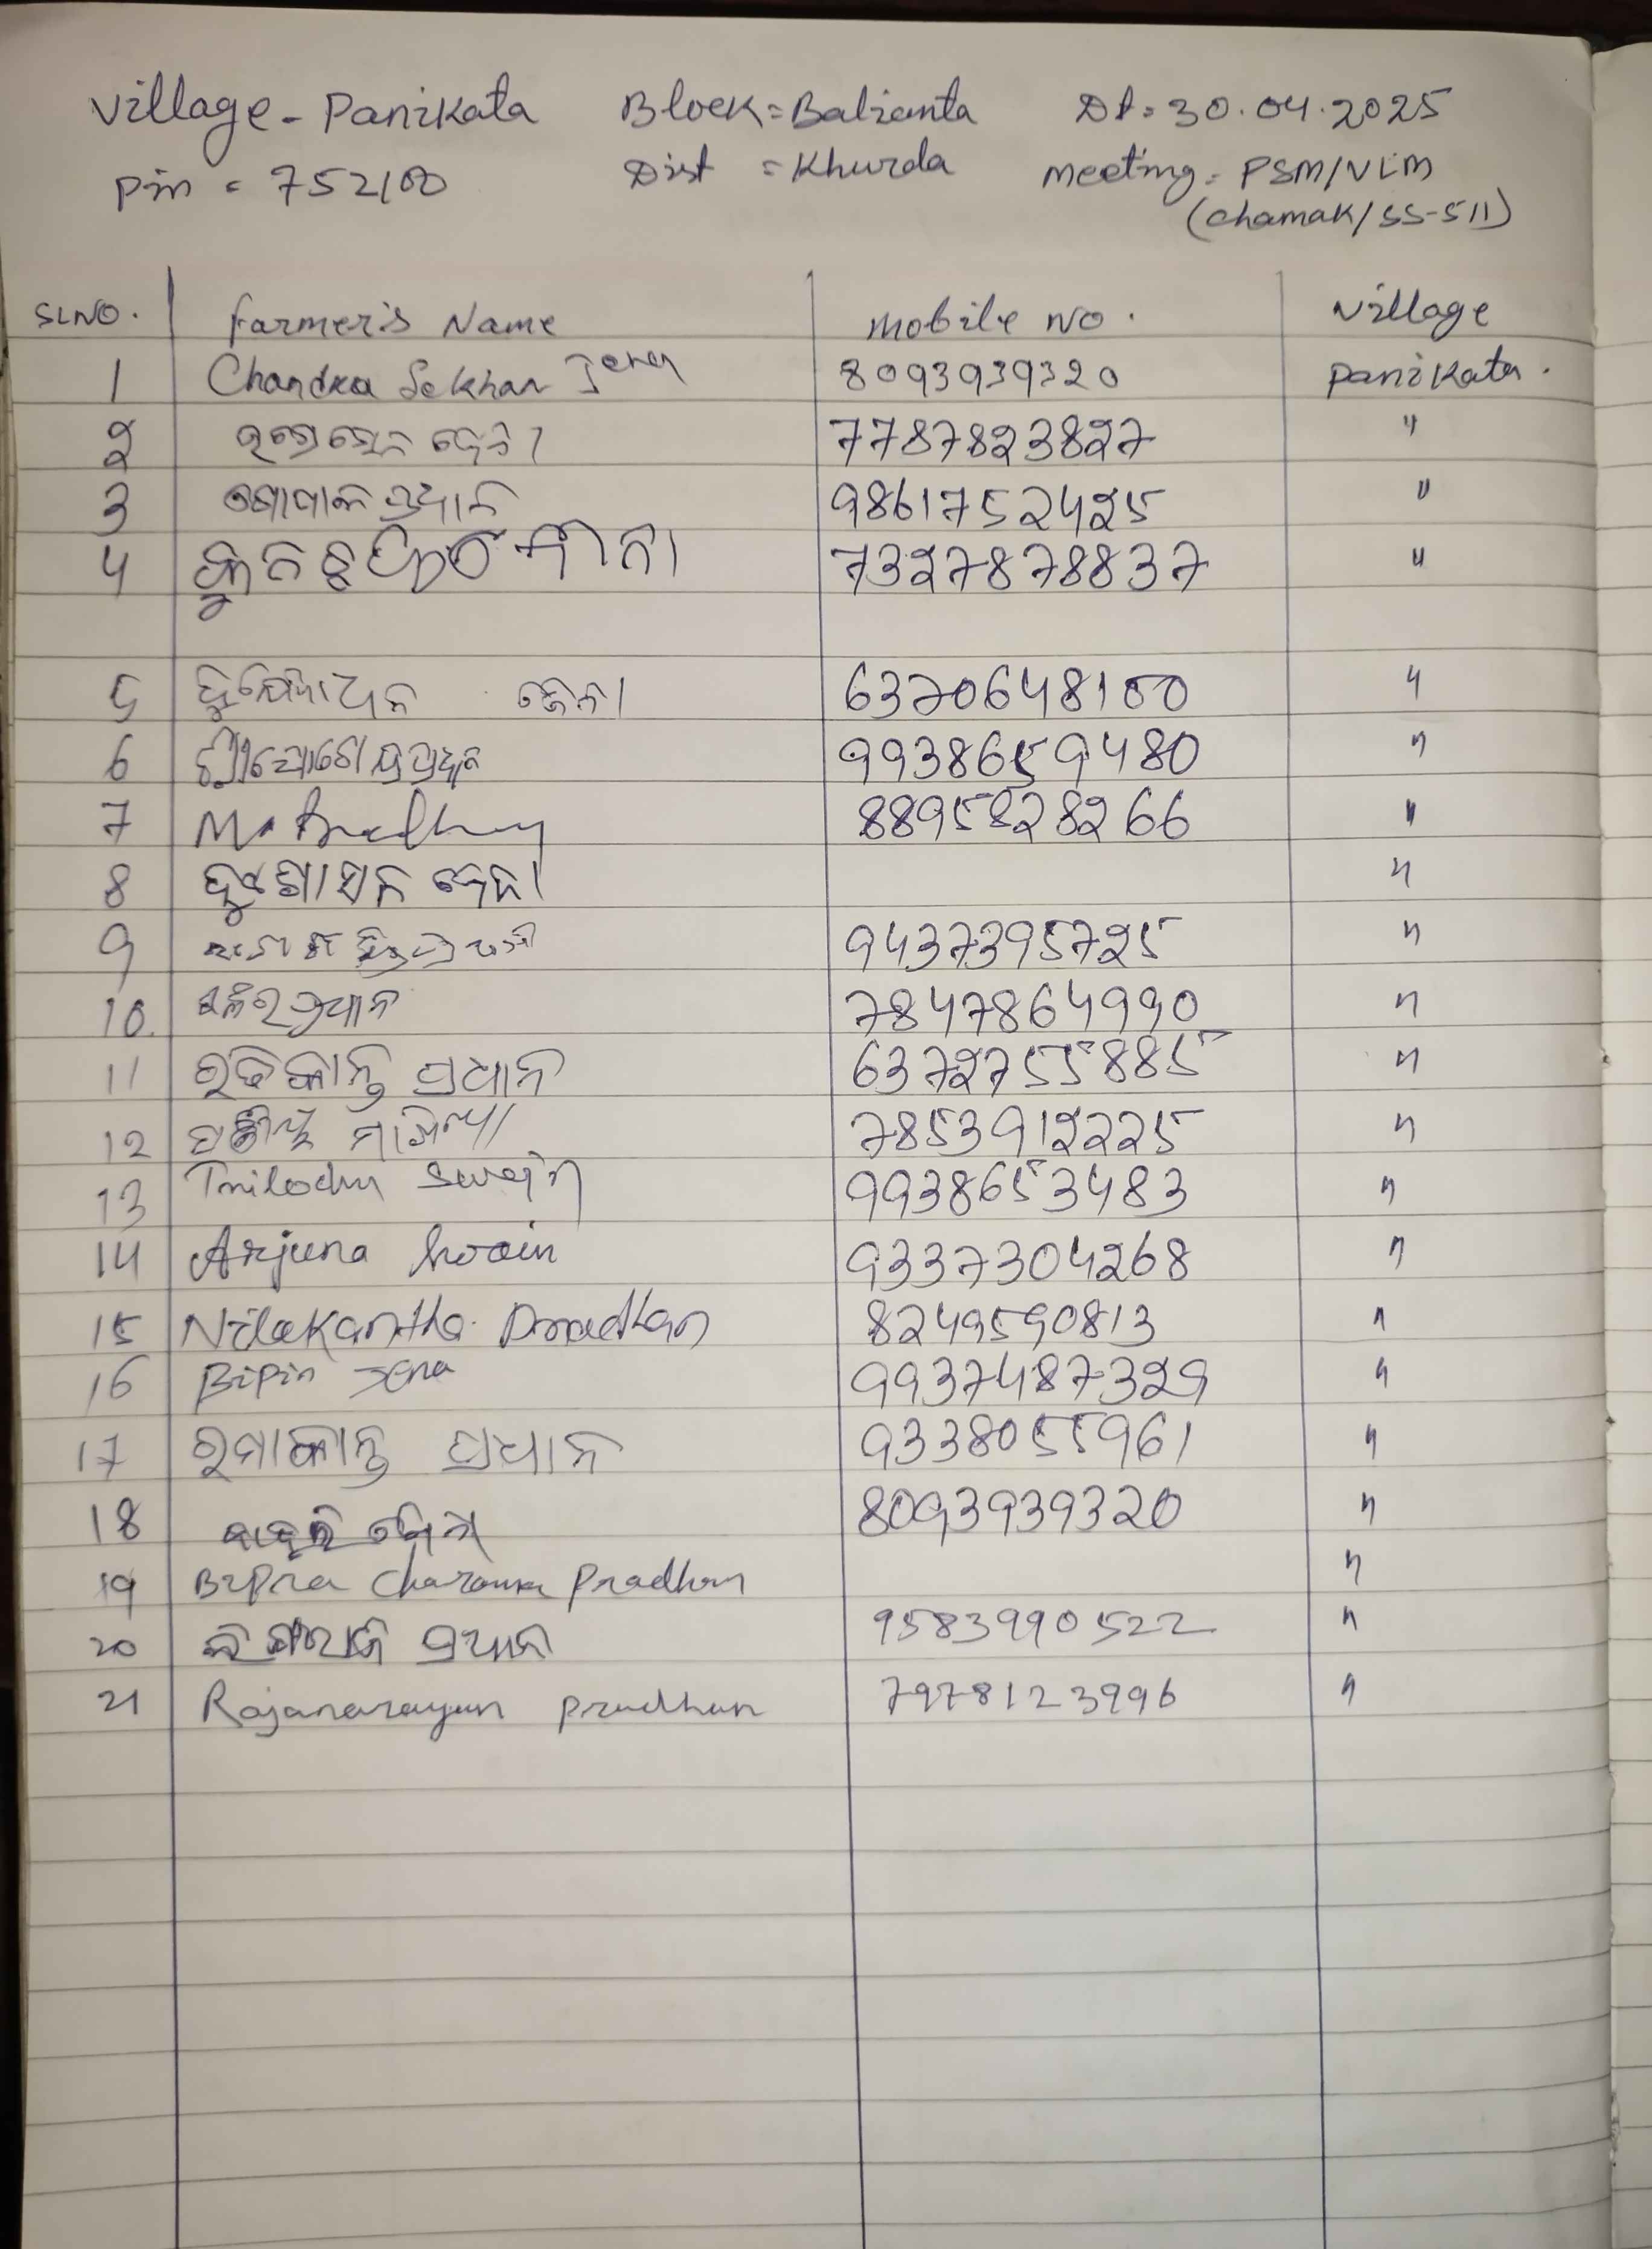 Village - Panikata Block = Balianta Dt = 30.04.2025
Pin = 752100 Dist = Khurda Meeting = PSM/VLM
(chamak/SS-511)
SLNO. Farmer's Name Mobile No. Village
1 Chandra Sekhar Jena 8093939320 Panikata.
2 ଜେନା 7787823827 "
3 ଗୋପାଳ ପ୍ରଧାନ 9861752425 "
4 7327878837 "
5 ଦୁର୍ଯ୍ୟୋଧନ ଜେନା 6370648100 "
6 9938659480 "
7 8895828266 "
8 ଦୁଃଶାସନ ଜେନା "
9 9437395725 "
10. ପ୍ରଧାନ 7847864990 "
11 ରତିକାନ୍ତ ପ୍ରଧାନ 6372755885 "
12 7853912225 "
13 Trilochn Swain 9938653483 "
14 Arjuna Swain 9337304268 "
15 Nilakantha Pradhan 8249590813 "
16 Bipin Jena 9937487329 "
17 ରମାକାନ୍ତ ପ୍ରଧାନ 9338055961 "
18 8093939320 "
19 Bipra Charana Pradhan "
20 ପ୍ରଧାନ 9583990522 "
21 Rajanarayan Pradhan 7978123996 "